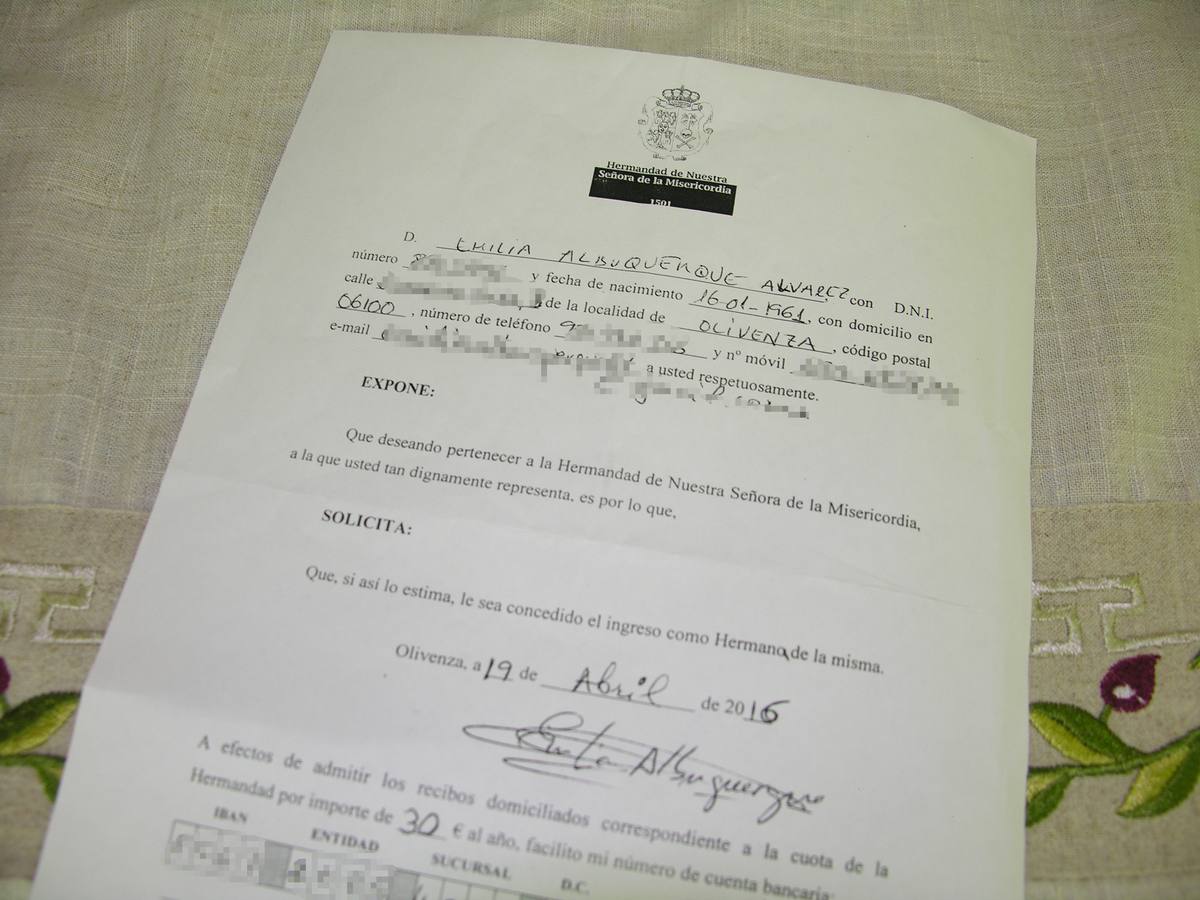 Hermandad de Nuestra
Señora de la Misericordia
1501
D. EMILIA ALBUQUERQUE ALVAREZ con D.N.I.
número y fecha de nacimiento 16-01-1961, con domicilio en
calle de la localidad de OLIVENZA, código postal
06100, número de teléfono y nº móvil
e-mail a usted respetuosamente.
EXPONE:
Que deseando pertenecer a la Hermandad de Nuestra Señora de la Misericordia,
a la que usted tan dignamente representa, es por lo que,
SOLICITA:
Que, si así lo estima, le sea concedido el ingreso como Hermana de la misma.
Olivenza, a 19 de Abril de 2016
Emilia Albuquerque
A efectos de admitir los recibos domiciliados correspondiente a la cuota de la
Hermandad por importe de 30 € al año, facilito mi número de cuenta bancaria:
IBAN ENTIDAD SUCURSAL D.C.